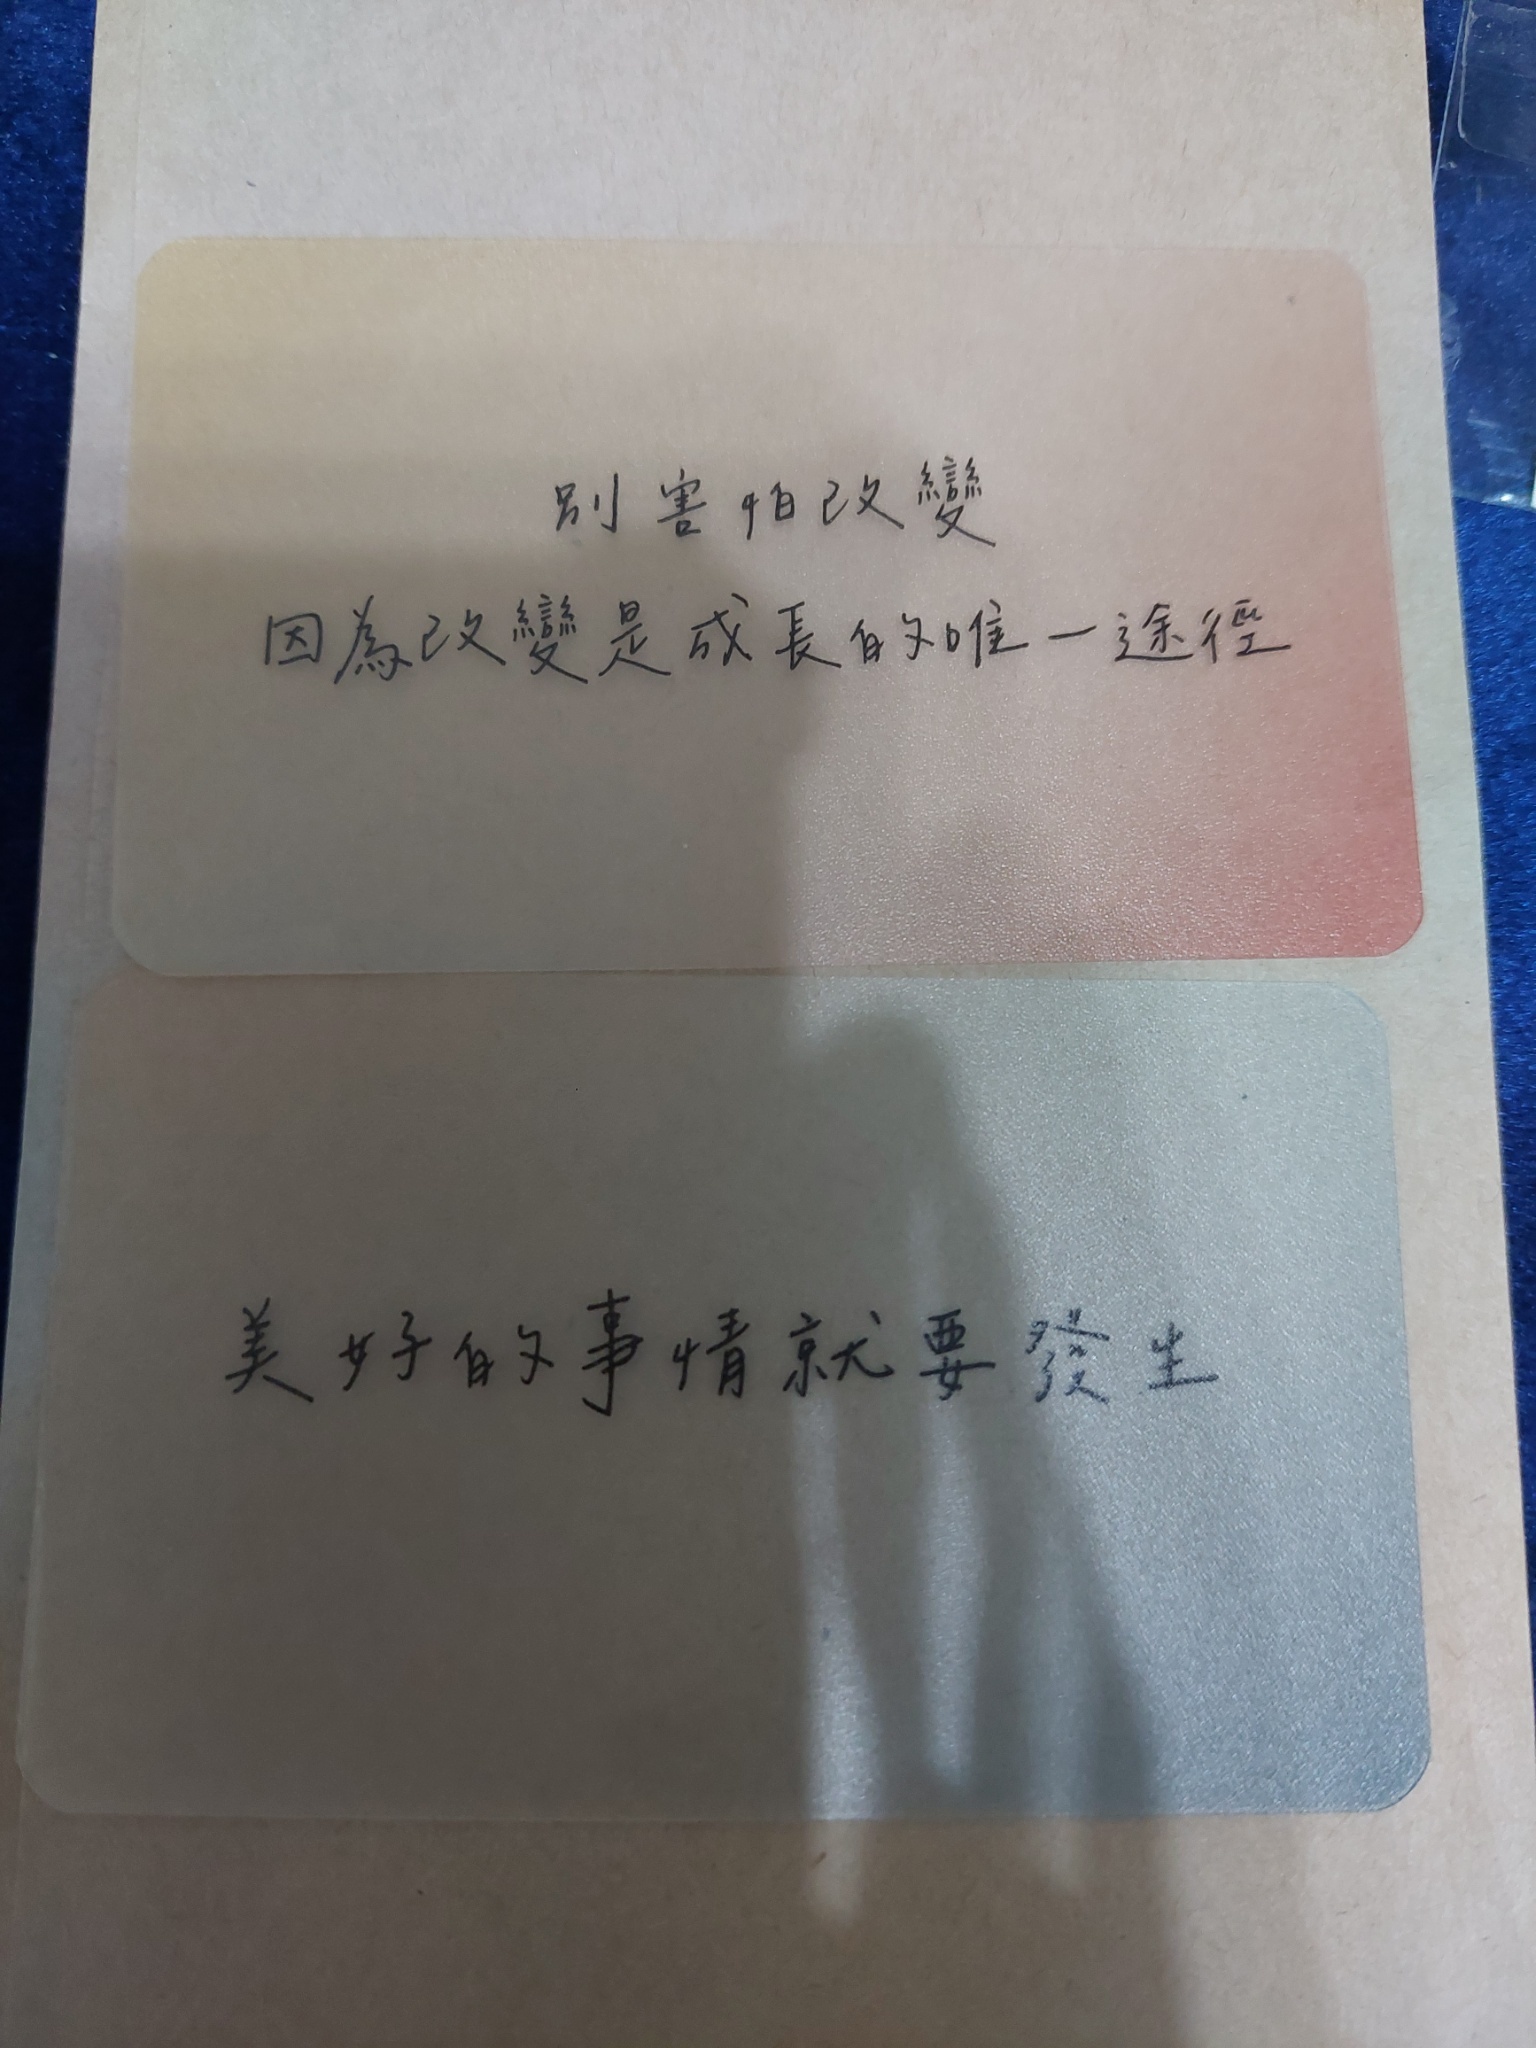 別害怕改變
因為改變是成長的唯一途徑
美好的事情就要發生